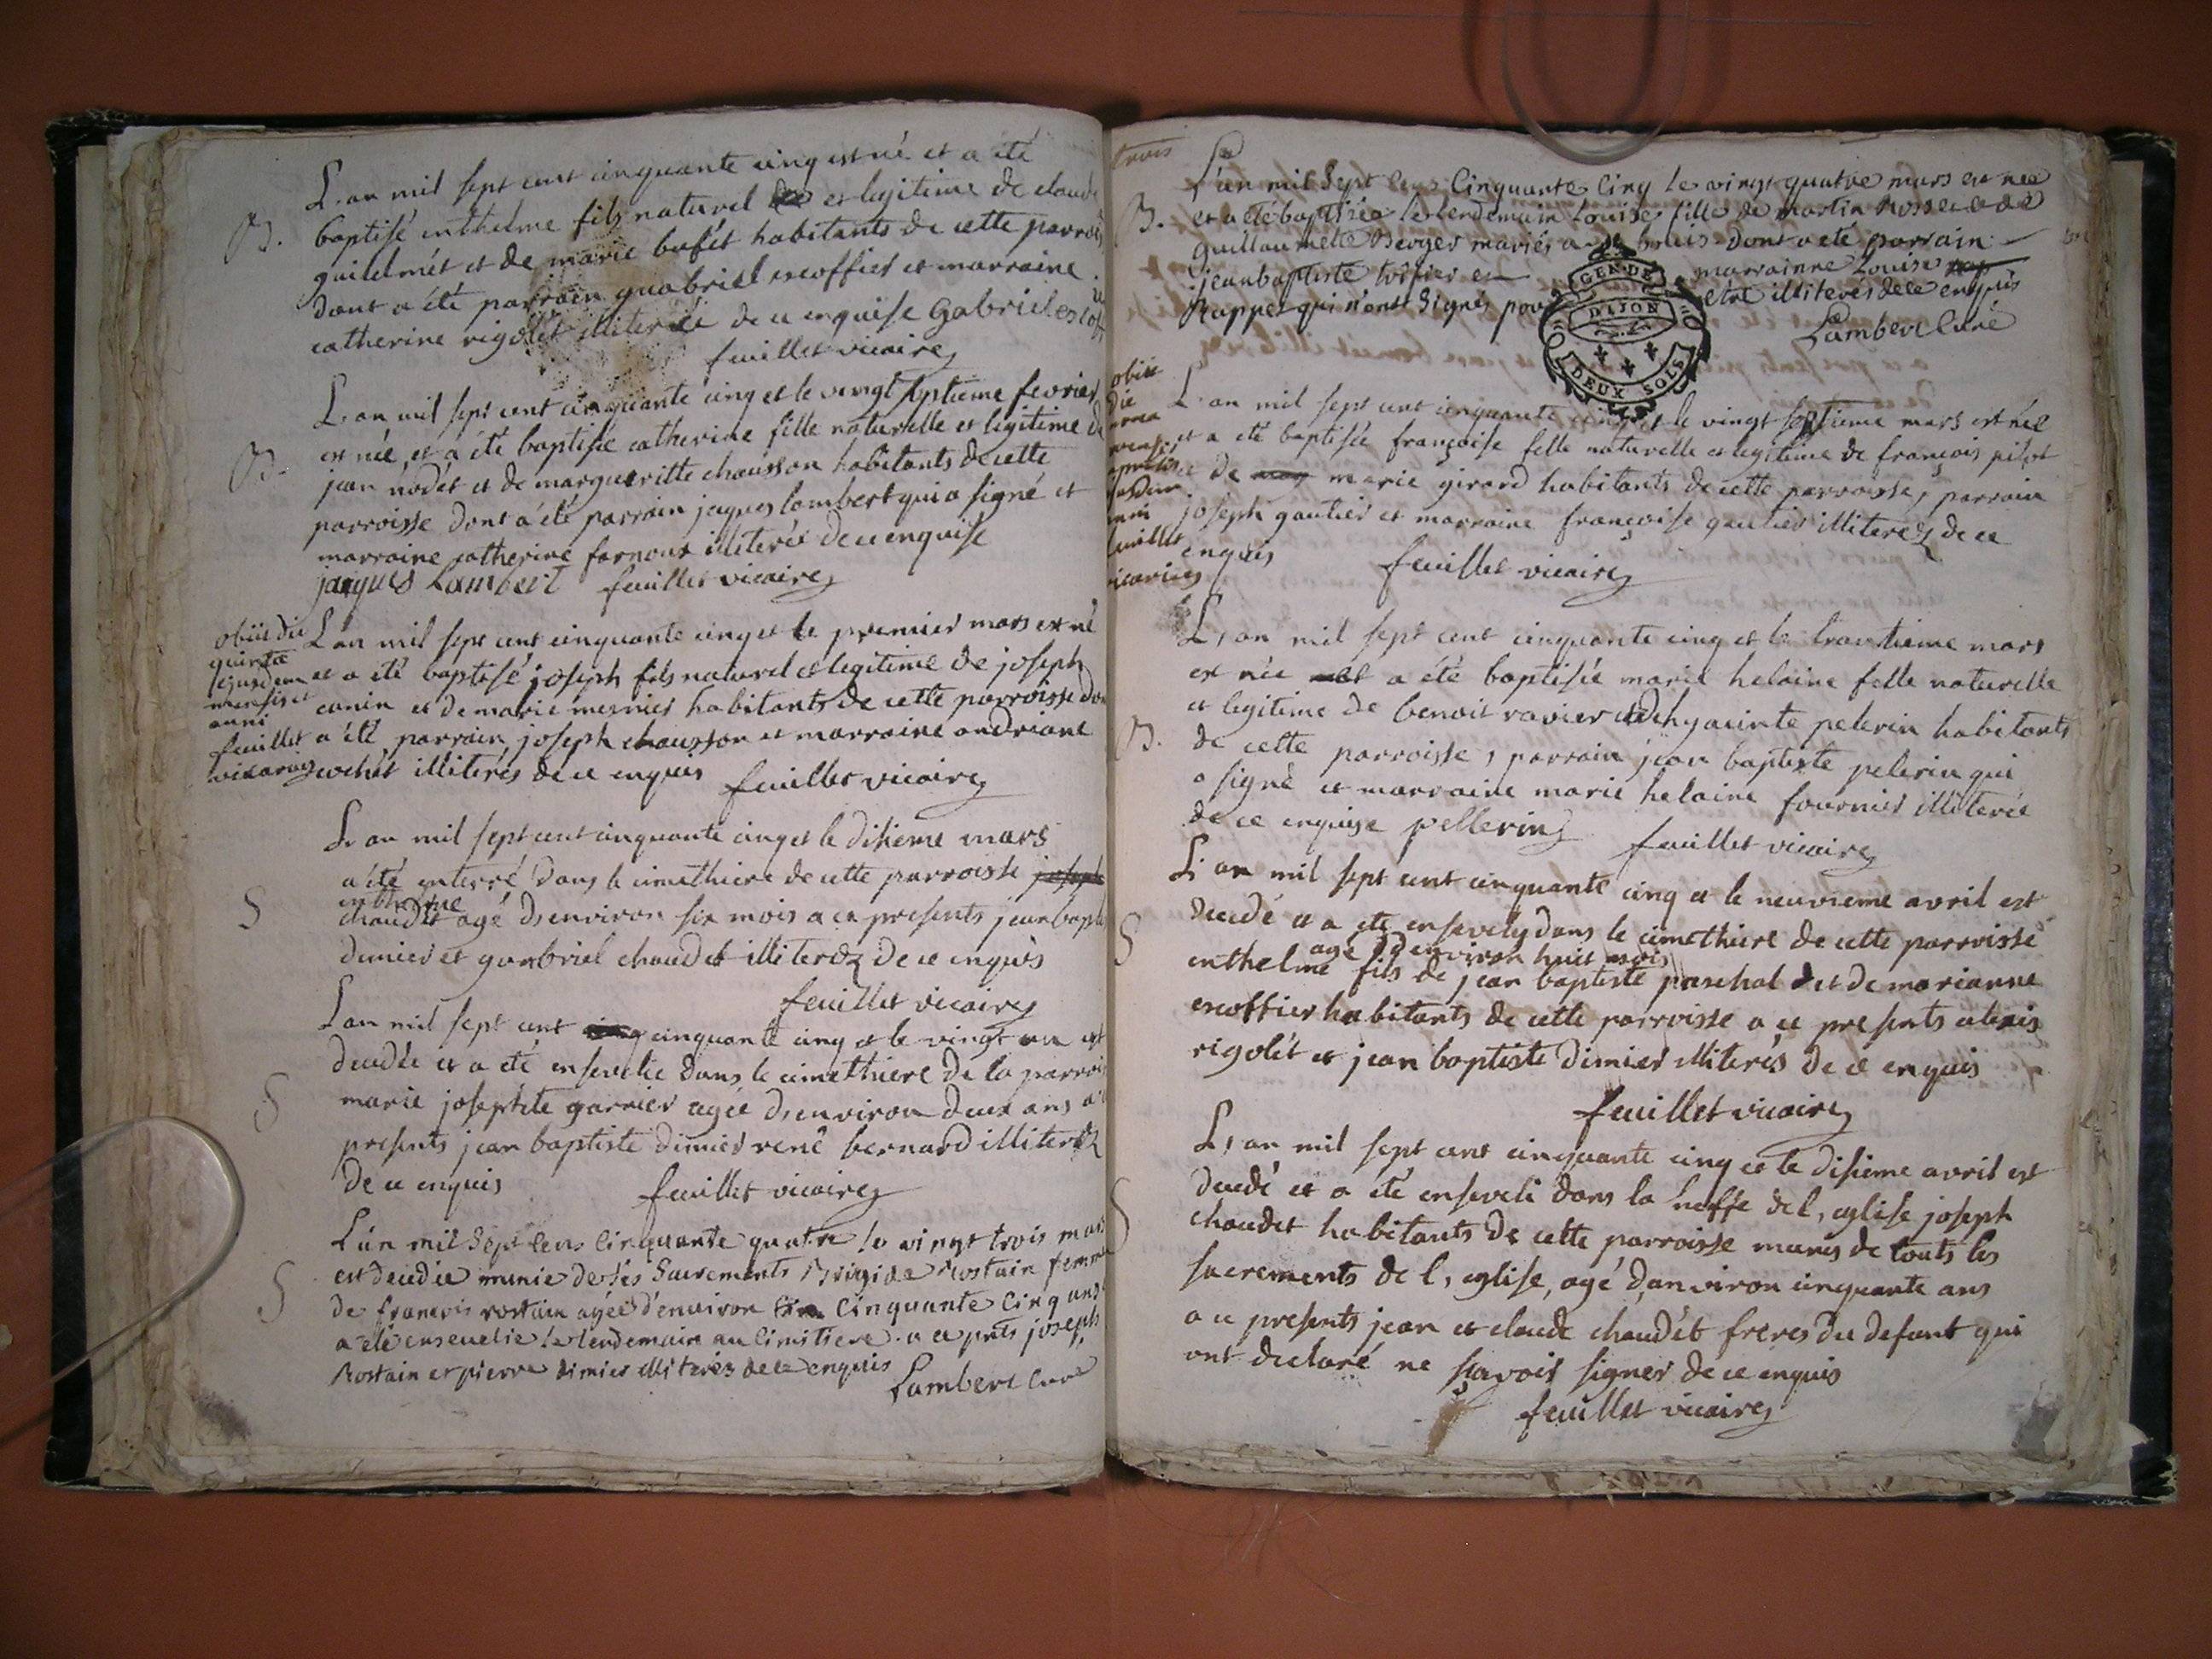 L'an mil sept cent cinquante cinq est né et a été
B. baptisé enthelme fils naturel et legitime de claude
guilelmét et de marie bufét habitants de cette parrois
dont a été parrain guabriel escoffier et marraine
catherine rigolét illiterée de ce enquise Gabriel escof
feuillet vicaire
L'an mil sept cent cinquante cinq et le vingt septieme fevrier
est née et a été baptisée catherine fille naturelle et legitime de
B. jean nodét et de margueritte chausson habitants de cette
parroisse dont a été parrain jaques lambert qui a signé et
marraine catherine farnoux illiterée de ce enquise
jacques Lambert feuillet vicaire
obiit die
quinta
ejusdem
mensis et
anni
feuillet
vicarius
L'an mil sept cent cinquante cinq et le premier mars est né
et a été baptisé joseph fils naturel et legitime de joseph
canin et de marie mesnier habitants de cette parroisse don
a été parrain joseph chausson et marraine andriane
cochet illiterés de ce enquis feuillet vicaire
L'an mil sept cent cinquante cinq et le disieme mars
a été enterré dans le cimethiere de cette parroisse joseph
enthelme
S chaudet agé d'environ six mois a ce presents jean bapte
dimier et guabriel chaudet illiterez de ce enquis
feuillet vicaire
L'an mil sept cent cinquante cinq et le vingt un est
decedée et a été ensevelie dans le cimethiere de la parrois
S marie josephte garnier agée d'environ deux ans a ce
presents jean baptiste dimier rené bernard illiterez
de ce enquis feuillet vicaire
L'an mil Sept Cens Cinquante quatre le vingt trois mars
est decedée munie de ses Sacrements Brigide Rostain femme
S de francois rostain agée d'environ Cinquante Cinq ans
a été ensevelie le lendemain au Cimitiere. a ce pnts joseph
Rostain et pierre dimier illiterés de ce enquis
Lambert Curé
trois
L'an mil Sept Cens Cinquante Cinq le vingt quatre mars est née
B. et a été baptisée le lendemain Louise fille de martin Rosset et de
guillaumette Berger mariés a dont a été parrain
jean baptiste et marrainne Louise
Rappet qui n'ont Signés pour etre illiterés de ce enquis
Lambert Curé
GEN. DE
DIJON
DEUX SOLS
obiit
die
mensis
ejusdem
anni
feuillet
vicarius
L'an mil sept cent cinquante cinq et le vingt septieme mars est née
et a été baptisée françoise fille naturelle et legitime de françois pilot
de marie girard habitants de cette parroisse, parrain
joseph gautier et marraine françoise gautier illiterez de ce
enquis feuillet vicaire
L'an mil sept cent cinquante cinq et le trantieme mars
est née et a été baptisée marie helaine fille naturelle
et legitime de benoit ravier et de hyacinte pelerin habitants
B. de cette parroisse, parrain jean baptiste pelerin qui
a signé et marraine marie helaine fournier illiterée
de ce enquise pellerin feuillet vicaire
L'an mil sept cent cinquante cinq et le neuvieme avril est
decedé et a été ensevely dans le cimethiere de cette parroisse
S agé d'environ huit mois
enthelme fils de jean baptiste paschal et de marianne
escoffier habitants de cette parroisse a ce presents alexis
rigolét et jean baptiste dimier illiterés de ce enquis
feuillet vicaire
L'an mil sept cent cinquante cinq et le disieme avril est
decedé et a été enseveli dans la neffe de l'eglise joseph
S chaudet habitants de cette parroisse munis de touts les
sacrements de l'eglise, agé d'anviron cinquante ans
a ce presents jean et claude chaudét freres du defunt qui
ont declaré ne sçavoir signer de ce enquis
feuillet vicaire